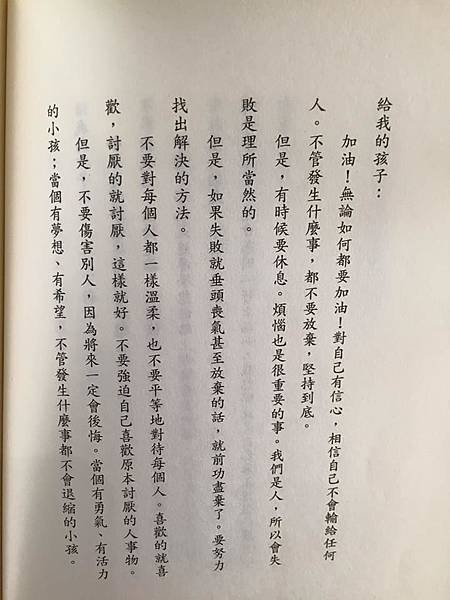 給我的孩子：
加油！無論如何都要加油！對自己有信心，相信自己不會輸給任何
人。不管發生什麼事，都不要放棄，堅持到底。
但是，有時候要休息。煩惱也是很重要的事。我們是人，所以會失
敗是理所當然的。
但是，如果失敗就垂頭喪氣甚至放棄的話，就前功盡棄了。要努力
找出解決的方法。
不要對每個人都一樣溫柔，也不要平等地對待每個人。喜歡的就喜
歡，討厭的就討厭，這樣就好。不要強迫自己喜歡原本討厭的人事物。
但是，不要傷害別人，因為將來一定會後悔。當個有勇氣、有活力
的小孩；當個有夢想、有希望，不管發生什麼事都不會退縮的小孩。